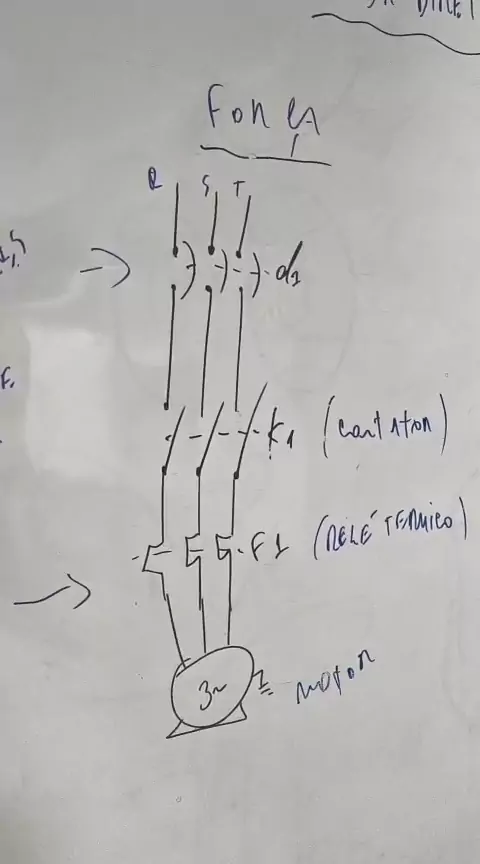 FORÇA
R S T
d1
K1 (contator)
F1 (RELÉ TERMICO)
3~ motor